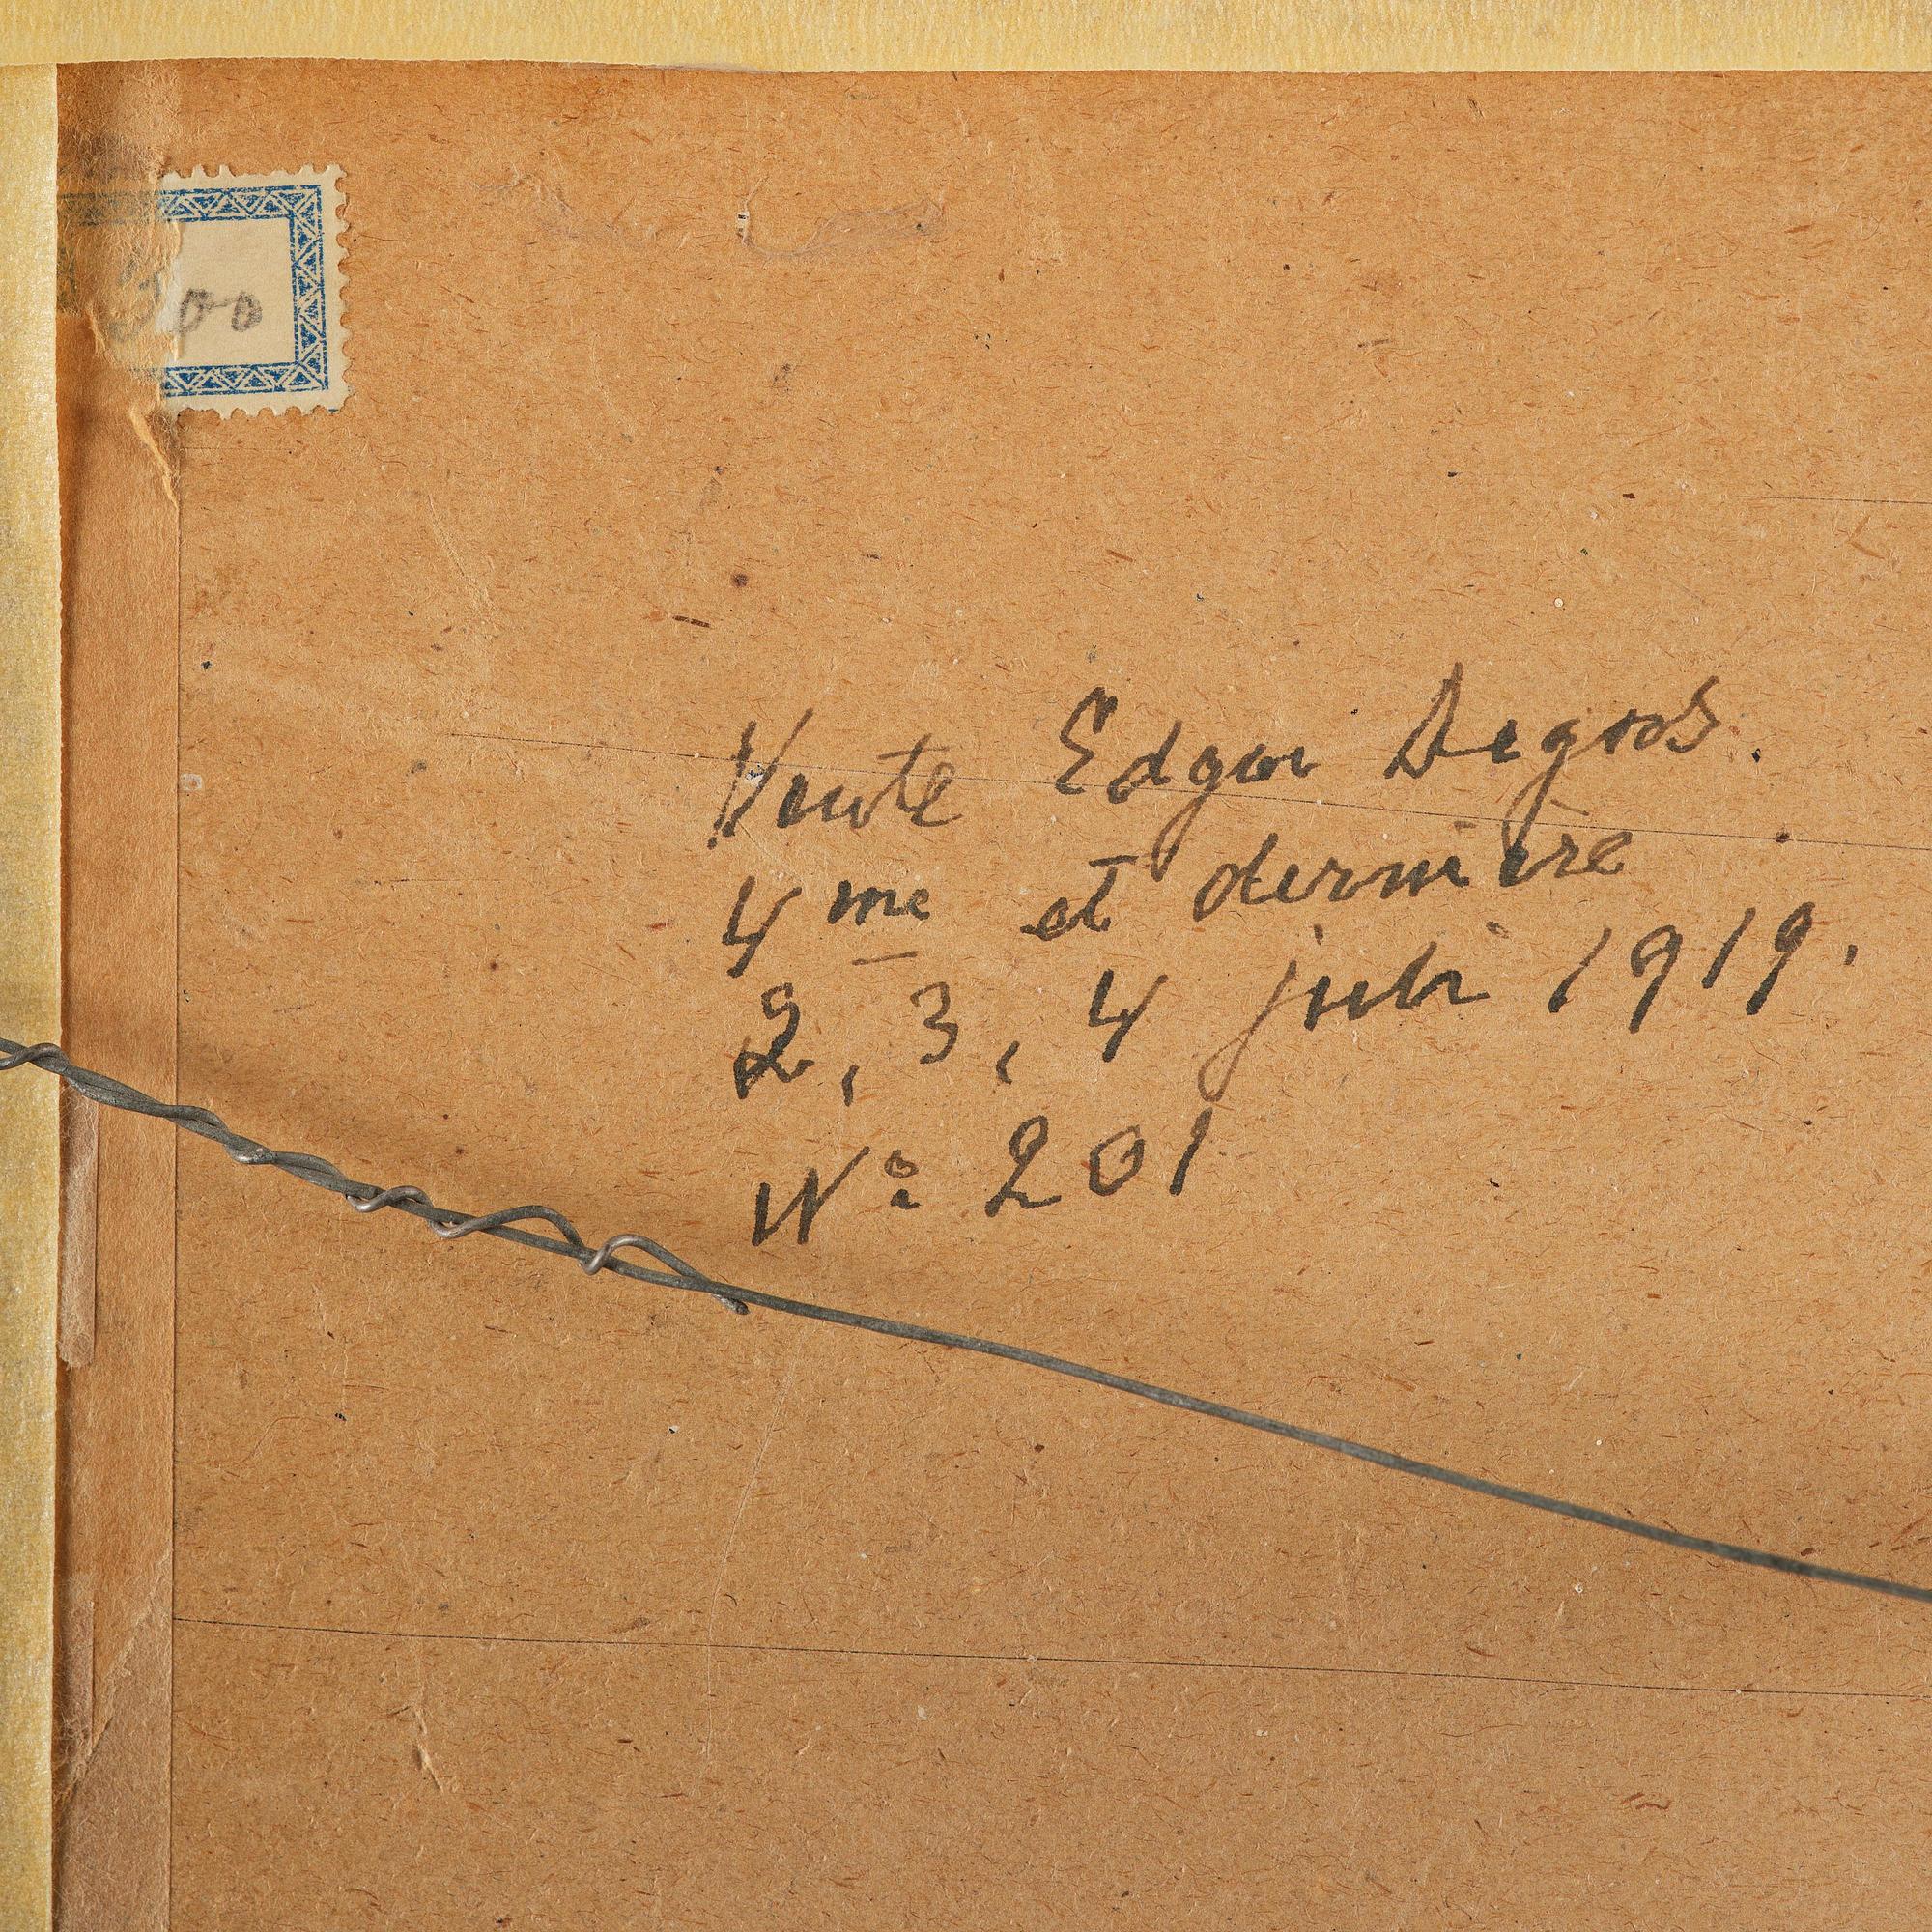 Vente Edgar Degas.
4me et dernière
2, 3, 4 juli 1919.
Nº 201